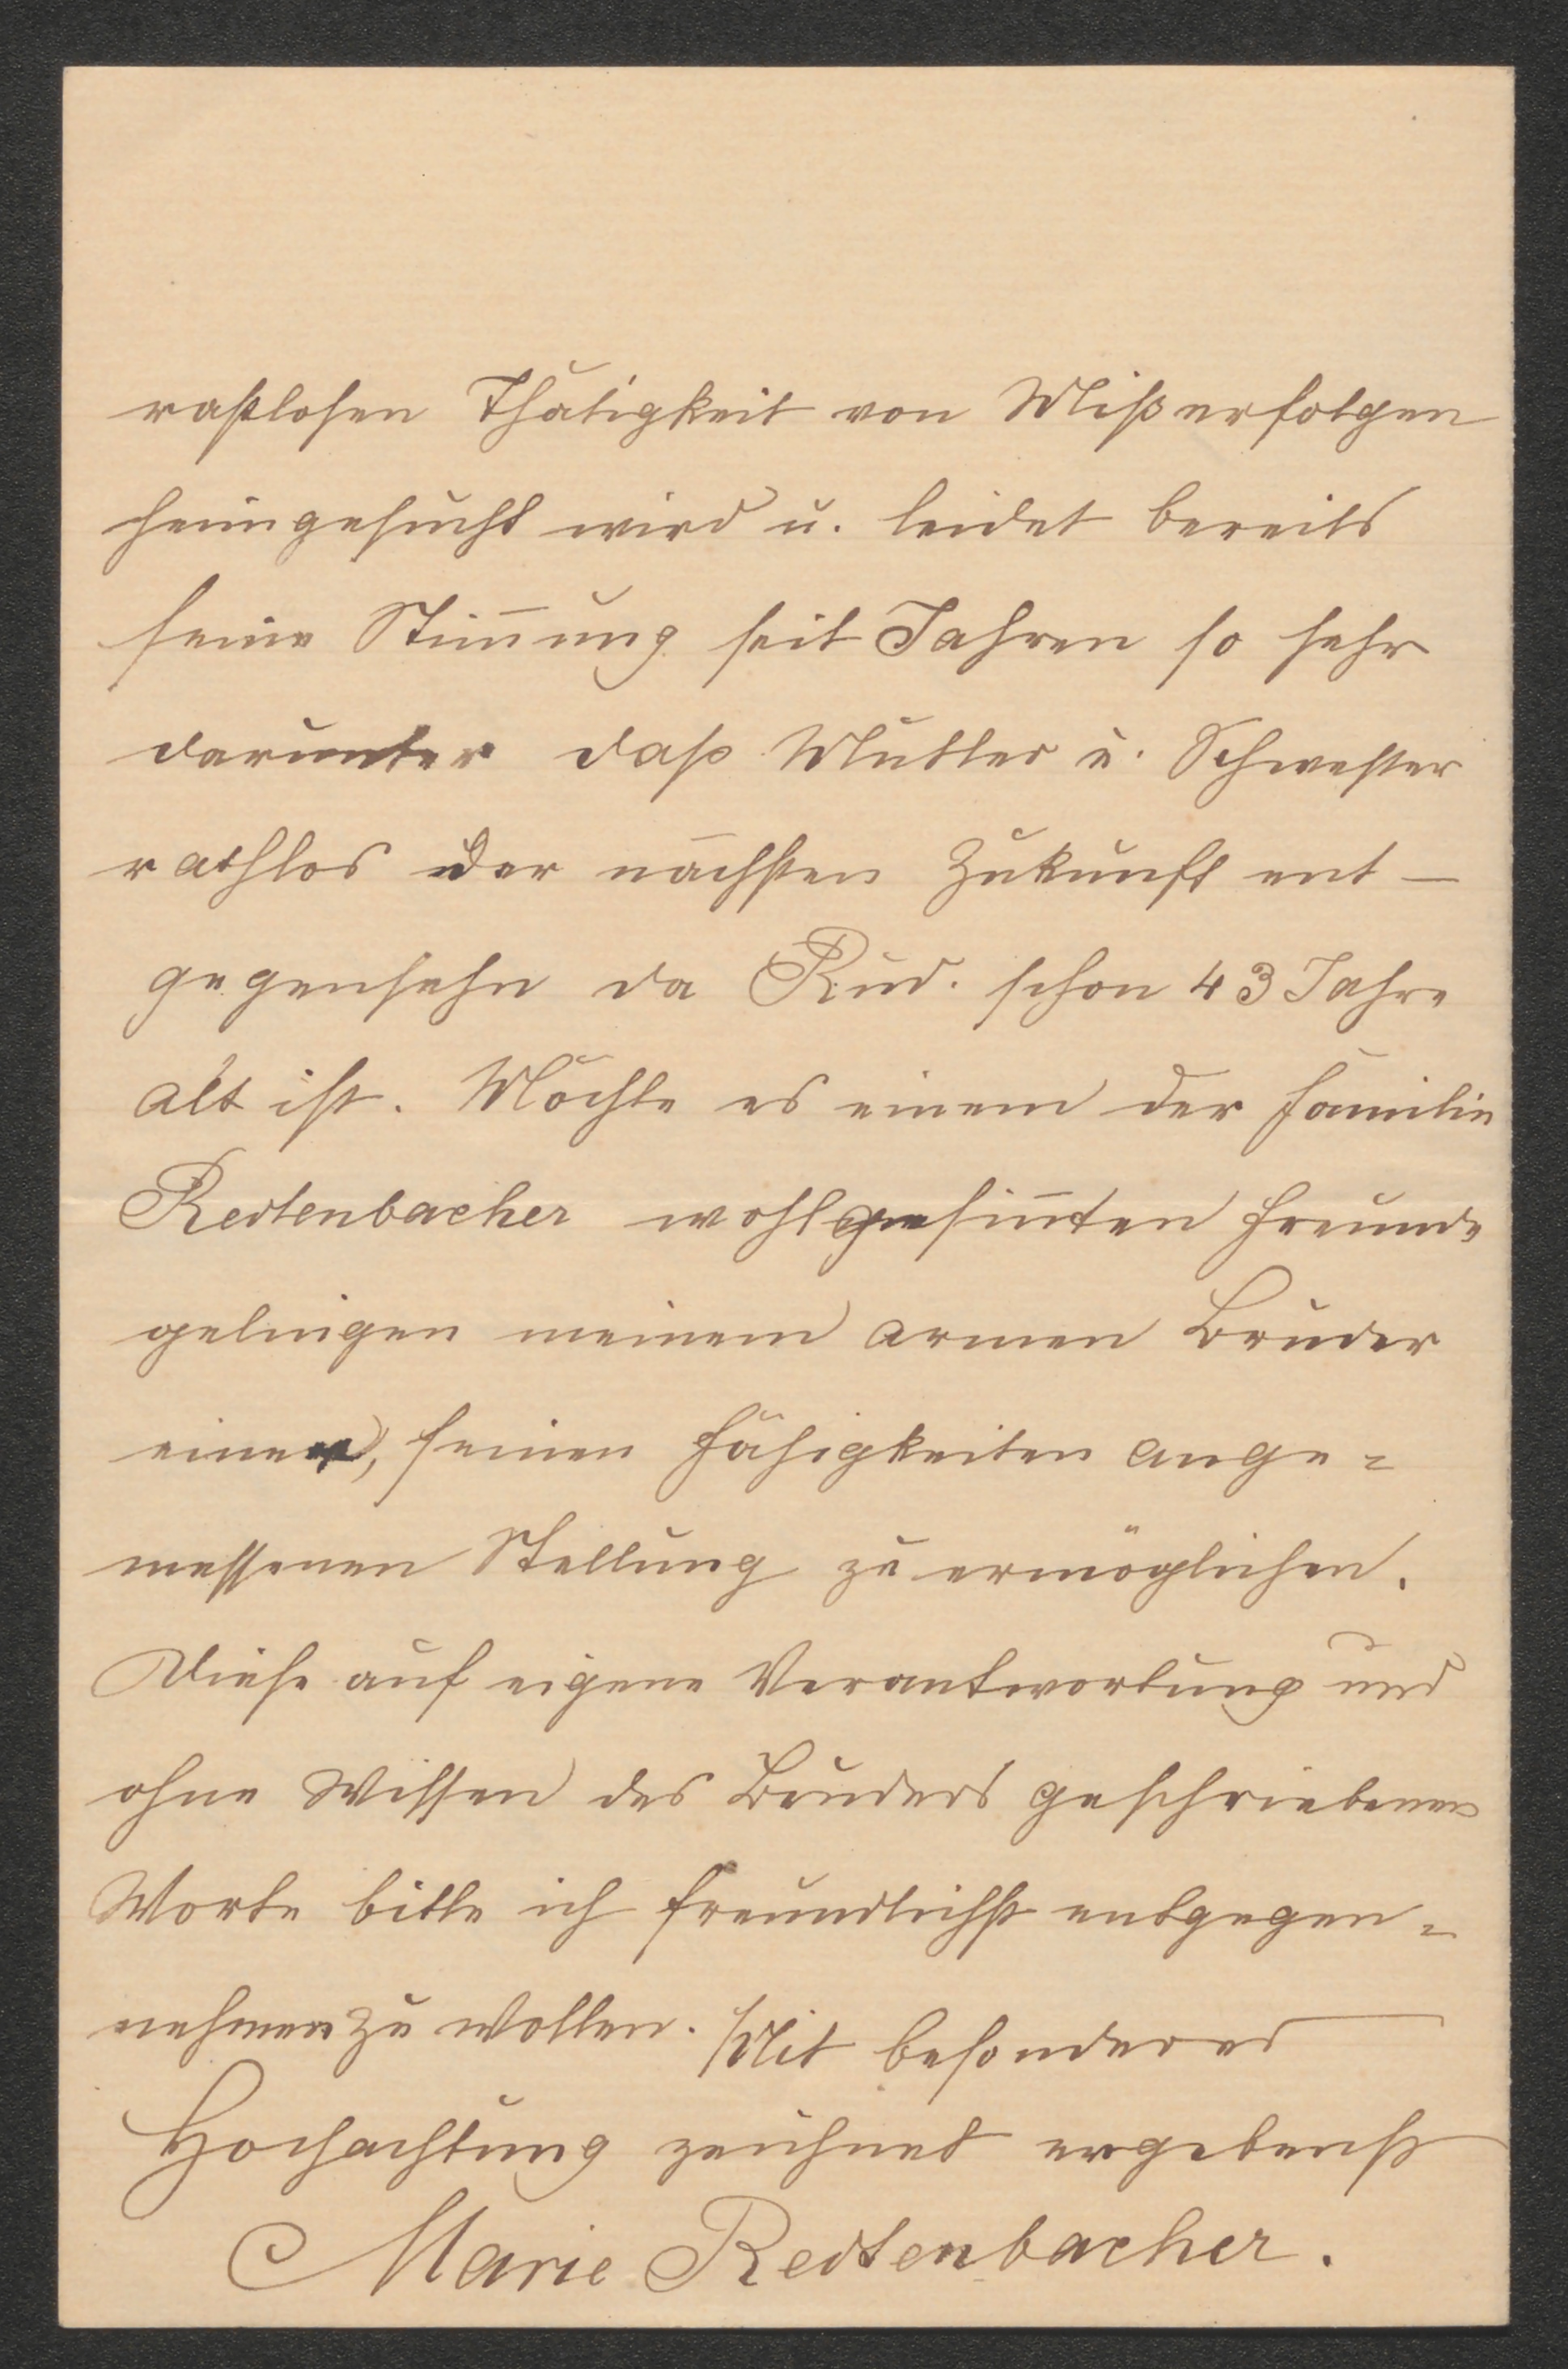 rastlosen Thätigkeit von Mißerfolgen
heimgesucht wird u. leidet bereits
seine Stim̅ung seit Jahren so sehr
darunter daß Mutter u. Schwester
rathlos der nächsten Zukunft ent-
gegensehn da Rud. schon 43 Jahre
alt ist. Möchte es einem der Familie
Redtenbacher wohlgesin̅ten Freunde
gelingen meinem armen Bruder
einen, seinen Fähigkeiten ange=
messenen Stellung zu ermöglichen.
Diese auf eigene Verantwortung und
ohne Wissen des Bruders geschriebenen
Worte bitte ich freundlichst entgegen=
nehmen zu wollen. Mit besonderer
Hochachtung zeichnet ergebenst
Marie Redtenbacher.